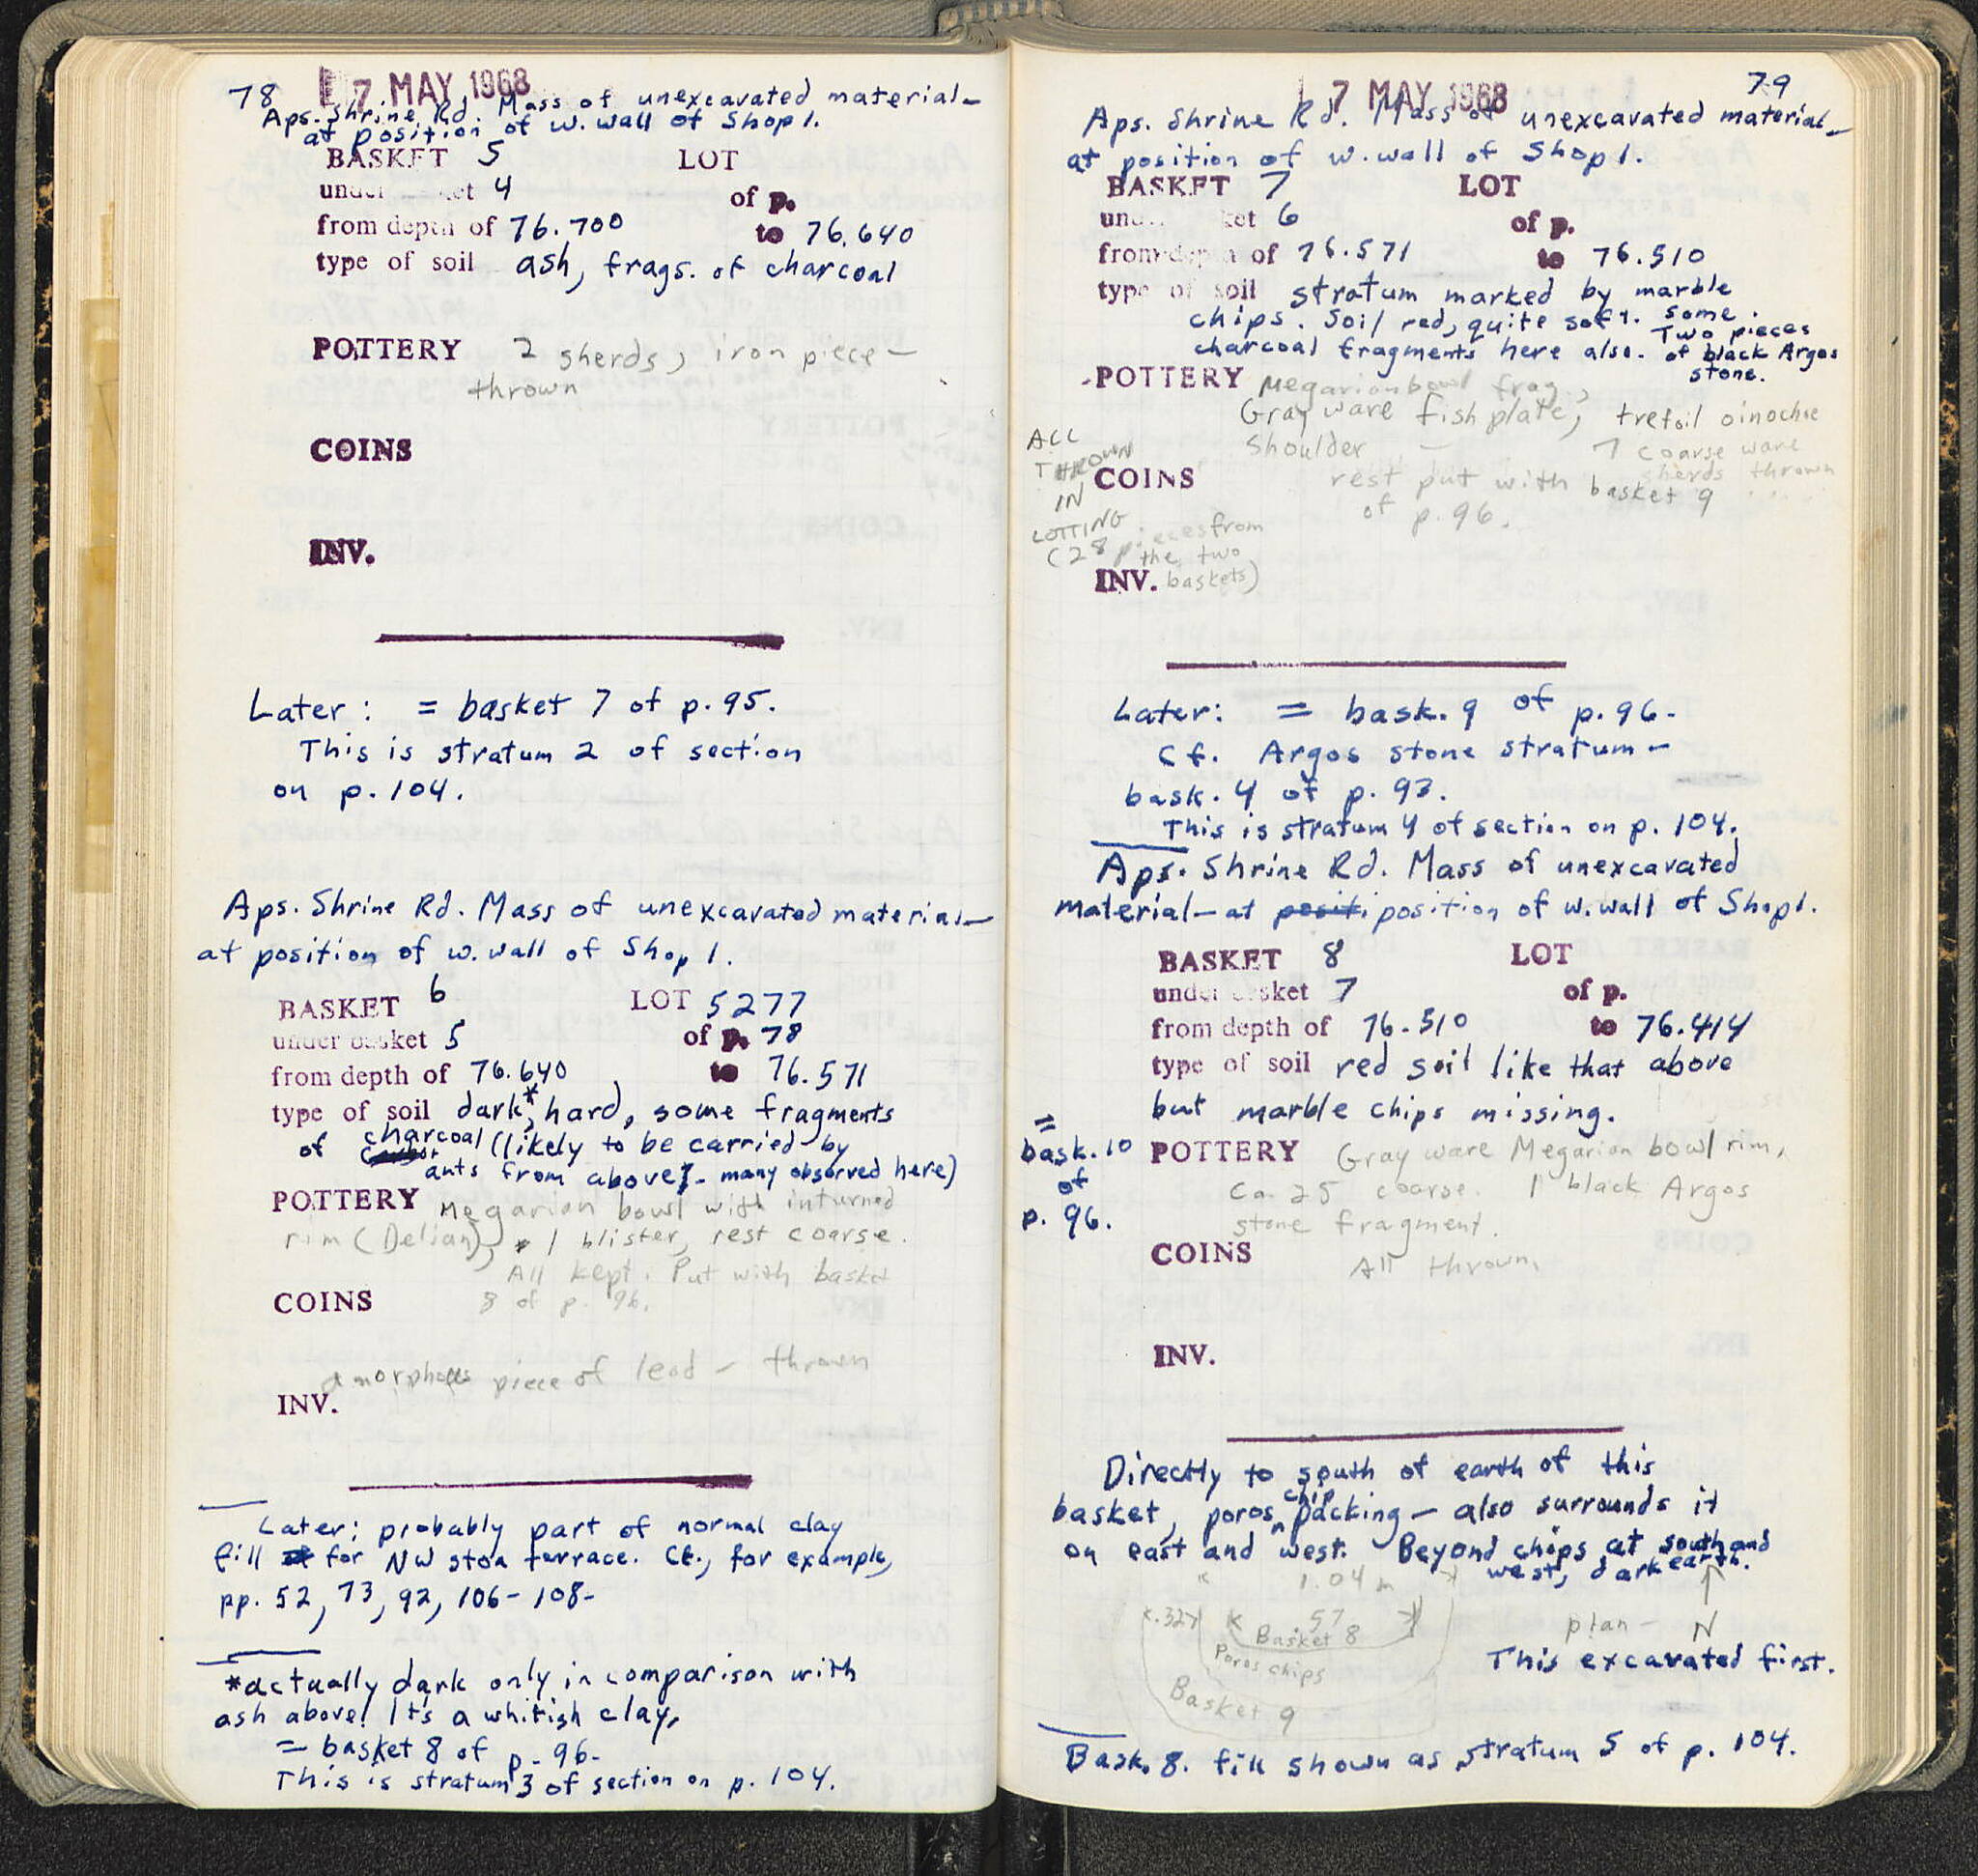 78
7 MAY 1968
Aps. Shrine Rd. Mass of unexcavated material-
at position of w. wall of Shop 1.
BASKET 5 LOT
under basket 4 of p.
from depth of 76.700 to 76.640
type of soil ash, frags. of charcoal
POTTERY 2 sherds, iron piece -
thrown
COINS
INV.
Later: = basket 7 of p. 95.
This is stratum 2 of section
on p. 104.
Aps. Shrine Rd. Mass of unexcavated material-
at position of w. wall of Shop 1.
BASKET 6 LOT 5277
under basket 5 of p. 78
from depth of 76.640 to 76.571
type of soil dark*, hard, some fragments
of charcoal (likely to be carried by
ants from above! - many observed here)
POTTERY Megarian bowl with inturned
rim (Delian), 1 blister, rest coarse.
All kept. Put with basket
8 of p. 96.
COINS
amorphous piece of lead - thrown
INV.
Later: probably part of normal clay
fill for NW stoa terrace. Cf., for example,
pp. 52, 73, 92, 106-108-
*actually dark only in comparison with
ash above! It's a whitish clay,
= basket 8 of p. 96-
This is stratum 3 of section on p. 104.
79
7 MAY 1968
Aps. Shrine Rd. Mass of unexcavated material-
at position of w. wall of Shop 1.
BASKET 7 LOT
under basket 6 of p.
from depth of 76.571 to 76.510
type of soil stratum marked by marble
chips. Soil red, quite soft. Some
charcoal fragments here also. Two pieces
of black Argos
stone.
POTTERY Megarian bowl frag.,
Gray ware fish plate, trefoil oinochoe
shoulder - 7 coarse ware
sherds thrown
rest put with basket 9
of p. 96.
ALL
THROWN
IN
LOTTING
(28 pieces from
the two
baskets)
COINS
INV.
Later: = bask. 9 of p. 96-
Cf. Argos stone stratum-
bask. 4 of p. 93.
This is stratum 4 of section on p. 104.
Aps. Shrine Rd. Mass of unexcavated
material-at posit. position of w. wall of Shop 1.
BASKET 8 LOT
under basket 7 of p.
from depth of 76.510 to 76.414
type of soil red soil like that above
but marble chips missing.
=
bask. 10
of
p. 96.
POTTERY Gray ware Megarian bowl rim,
ca. 25 coarse. 1 black Argos
stone fragment.
COINS All thrown.
INV.
Directly to south of earth of this
basket, poros chip packing - also surrounds it
on east and west. Beyond chips at south and
west, dark earth.
1.04 m
.32 .57
Basket 8
Poros chips
Basket 9
plan - N
This excavated first.
Bask. 8. fill shown as stratum 5 of p. 104.